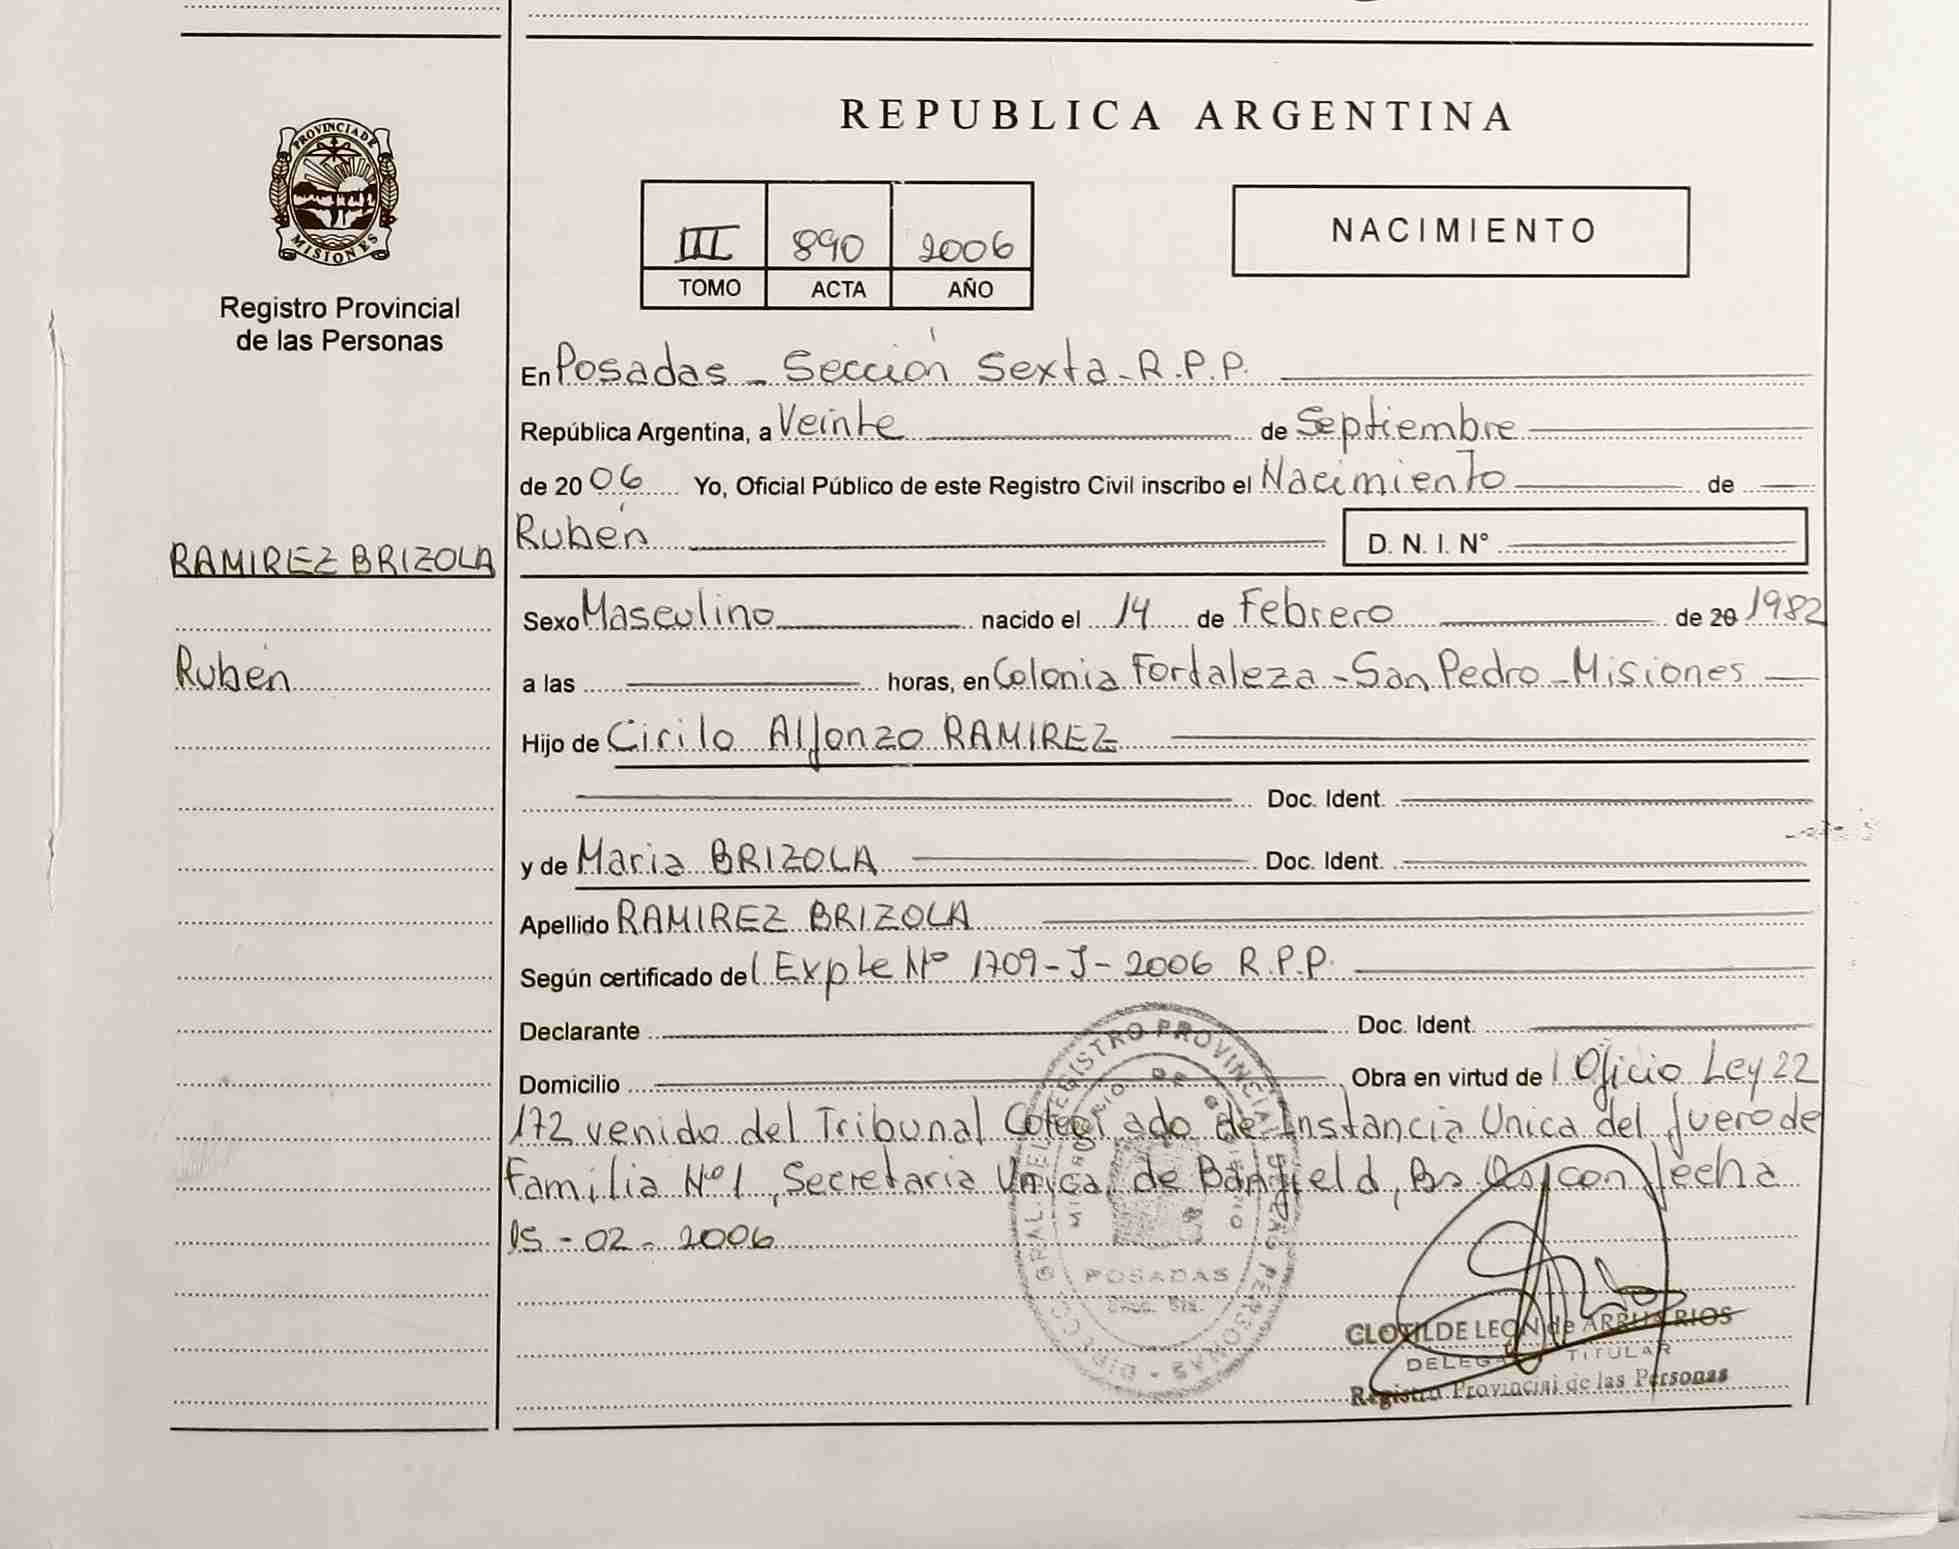 REPUBLICA ARGENTINA
PROVINCIA DE
MISIONES
Registro Provincial
de las Personas
III 890 2006
TOMO ACTA AÑO
NACIMIENTO
En Posadas - Sección Sexta - R.P.P.
República Argentina, a Veinte de Septiembre
de 2006 Yo, Oficial Público de este Registro Civil inscribo el Nacimiento de
RAMIREZ BRIZOLA
Rubén
Rubén D. N. I. N°
Sexo Masculino nacido el 14 de Febrero de 20 1982
a las horas, en Colonia Fortaleza - San Pedro - Misiones
Hijo de Cirilo Alfonzo RAMIREZ
Doc. Ident.
y de Maria BRIZOLA Doc. Ident.
Apellido RAMIREZ BRIZOLA
Según certificado del Expte N° 1709-J-2006 R.P.P.
Declarante Doc. Ident.
Domicilio Obra en virtud del Oficio Ley 22
172 venido del Tribunal Colegiado de Instancia Unica del fuero de
Familia N°1, Secretaria Unica, de Banfield, Bs As, con fecha
15-02-2006
REGISTRO PROVINCIAL DE LAS PERSONAS
MINISTERIO DE GOBIERNO
POSADAS
CLOTILDE LEON de ARRUA RIOS
DELEGADA TITULAR
Registro Provincial de las Personas